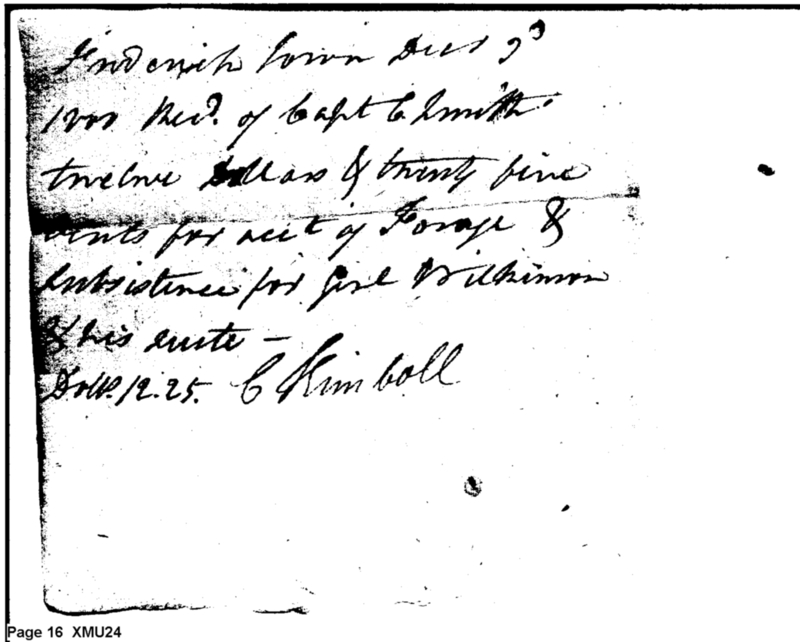 Frederick Town Decr 9th
1800 Recd. of Capt C Smith
twelve Dollars & twenty five
cents for acct of Forage &
subsistence for Genl Wilkinson
& his suite –
Dolls. 12.25. C Kimboll
Page 16 XMU24